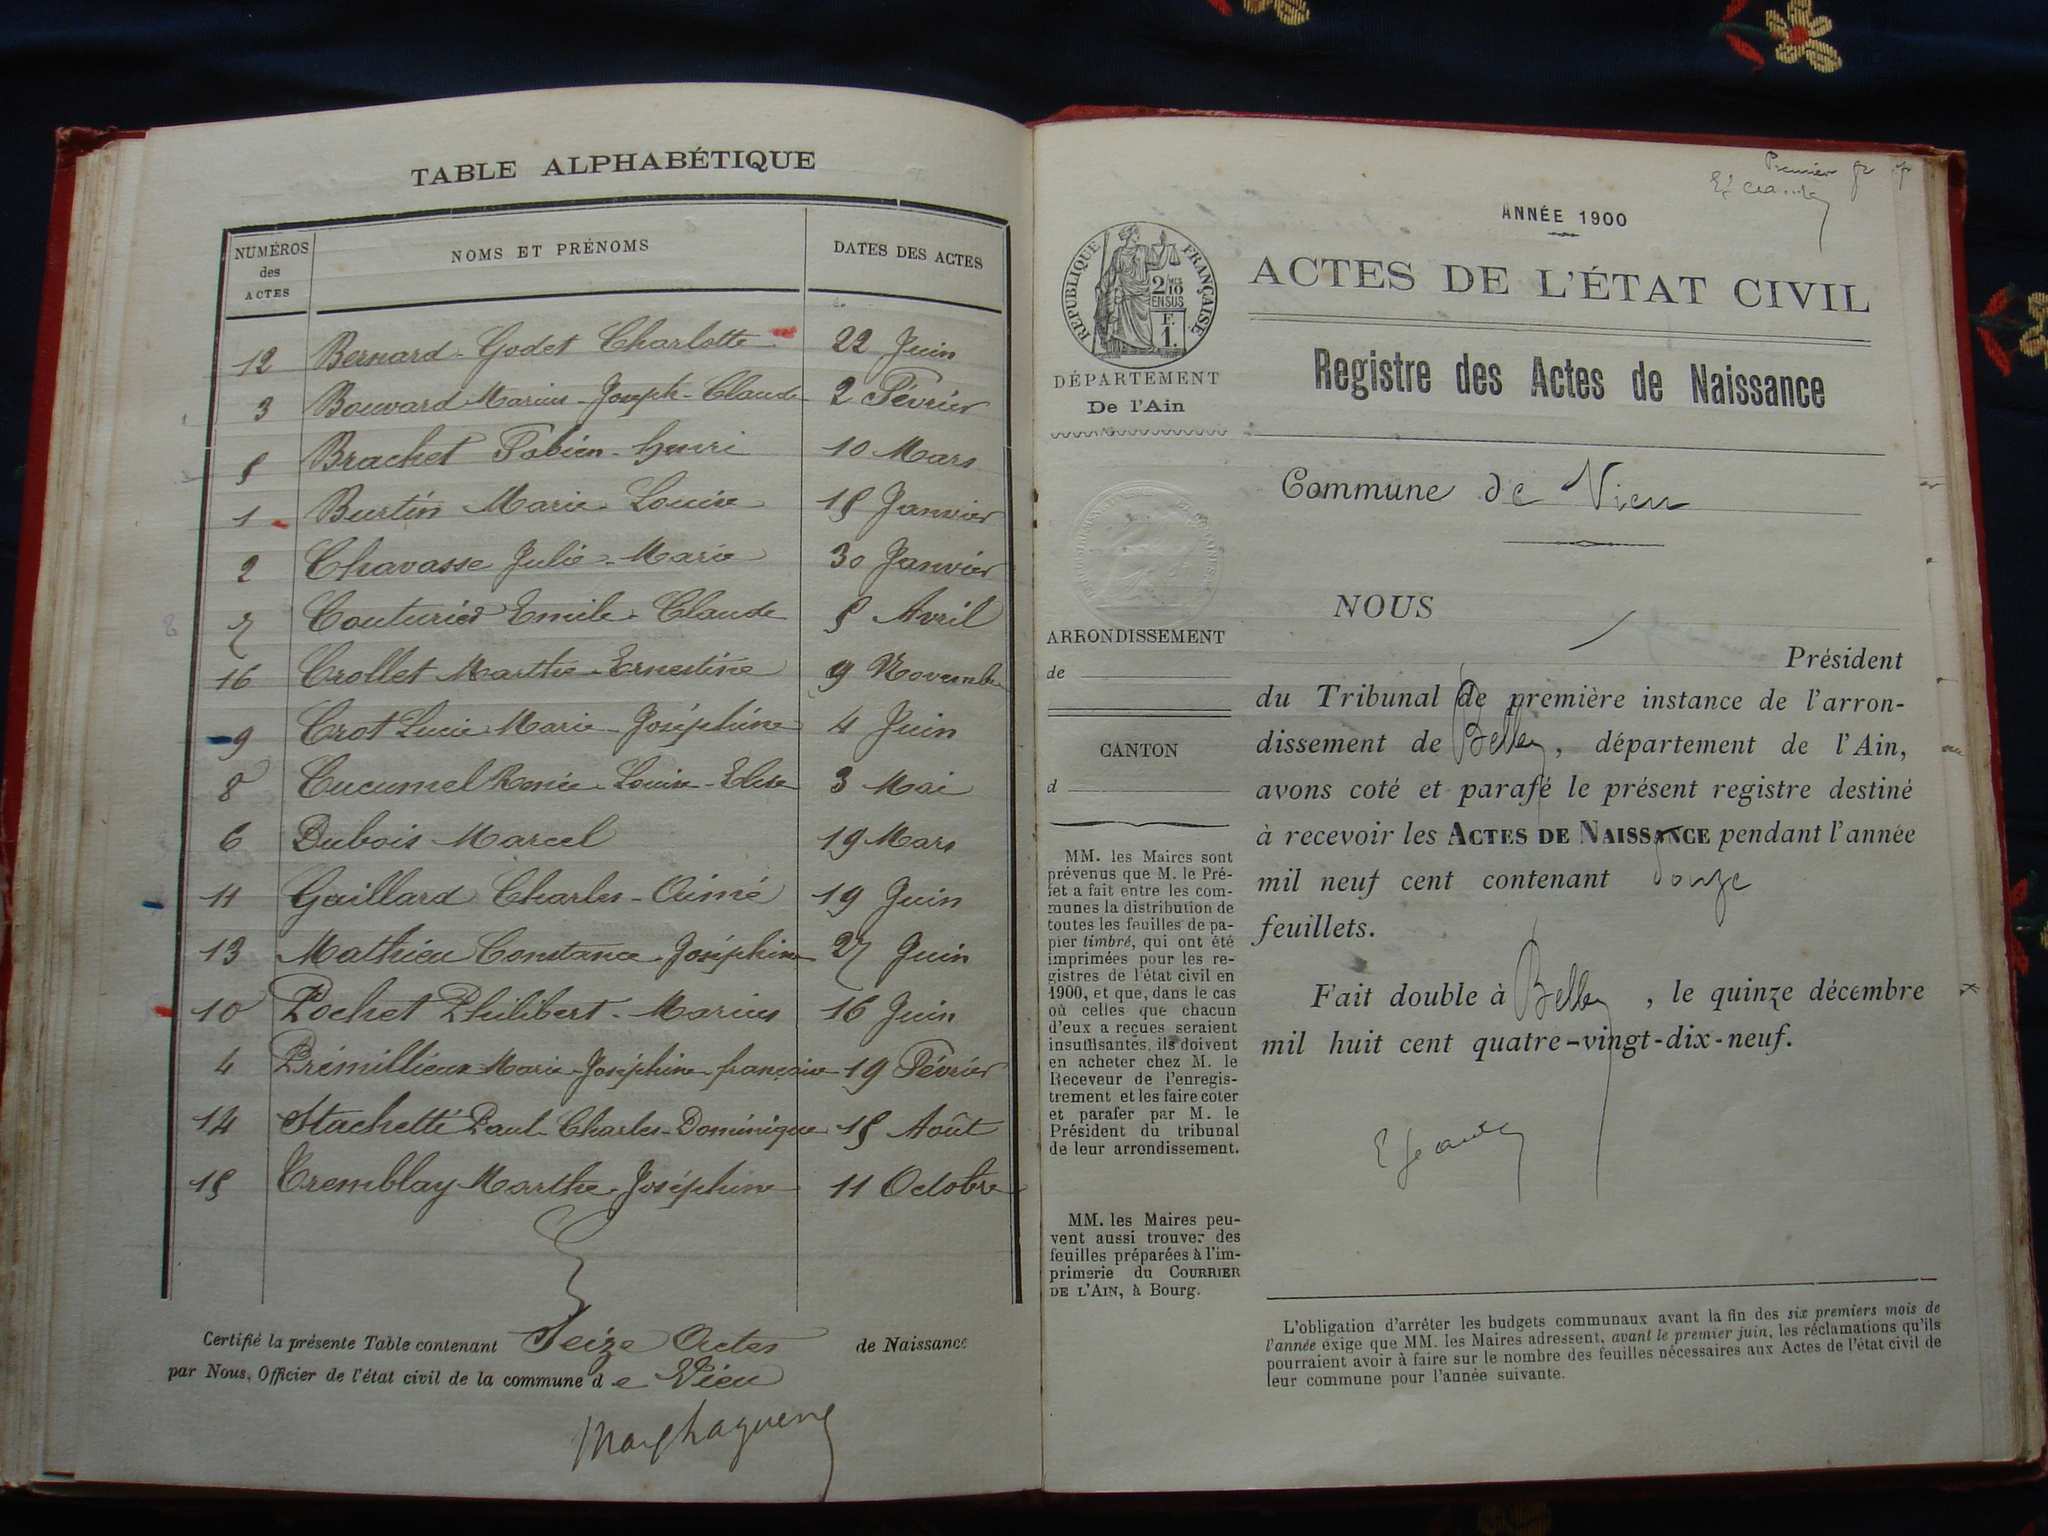 TABLE ALPHABÉTIQUE
NUMÉROS des ACTES NOMS ET PRÉNOMS DATES DES ACTES
12 Bernard-Godet Charlotte 22 Juin
3 Bouvard Marius-Joseph-Claude 2 Février
5 Brachet Fabien-Henri 10 Mars
1 Burtin Marie Louise 15 Janvier
2 Chavasse Julie-Marie 30 Janvier
7 Couturier Emile-Claude 5 Avril
16 Crollet Marthe-Ernestine 9 Novembre
9 Crot Lucie-Marie-Joséphine 4 Juin
8 Cucumel Renée-Louise-Elise 3 Mai
6 Dubois Marcel 19 Mars
11 Gaillard Charles-Aimé 19 Juin
13 Mathieu Constance-Joséphine 27 Juin
10 Pochet Philibert-Marius 16 Juin
4 Prémillieux Marie-Joséphine-françoise 19 Février
14 Stachetti Paul-Charles-Dominique 15 Août
15 Tremblay Marthe-Joséphine 11 Octobre
Certifié la présente Table contenant Seize Actes de Naissance
par Nous, Officier de l'état civil de la commune de Vieu
Premier
ANNÉE 1900
RÉPUBLIQUE FRANÇAISE
2/10 EN SUS
F. 1.
DÉPARTEMENT
De l'Ain
ARRONDISSEMENT
de
CANTON
d
MM. les Maires sont
prévenus que M. le Pré-
fet a fait entre les com-
munes la distribution de
toutes les feuilles de pa-
pier timbré, qui ont été
imprimées pour les re-
gistres de l'état civil en
1900, et que, dans le cas
où celles que chacun
d'eux a reçues seraient
insuffisantes, ils doivent
en acheter chez M. le
Receveur de l'enregis-
trement et les faire coter
et parafer par M. le
Président du tribunal
de leur arrondissement.
MM. les Maires peu-
vent aussi trouver des
feuilles préparées à l'im-
primerie du COURRIER
DE L'AIN, à Bourg.
ACTES DE L'ÉTAT CIVIL
Registre des Actes de Naissance
Commune de Vieu
NOUS
Président
du Tribunal de première instance de l'arron-
dissement de Belley, département de l'Ain,
avons coté et parafé le présent registre destiné
à recevoir les ACTES DE NAISSANCE pendant l'année
mil neuf cent contenant douze
feuillets.
Fait double à Belley, le quinze décembre
mil huit cent quatre-vingt-dix-neuf.
L'obligation d'arrêter les budgets communaux avant la fin des six premiers mois de
l'année exige que MM. les Maires adressent, avant le premier juin, les réclamations qu'ils
pourraient avoir à faire sur le nombre des feuilles nécessaires aux Actes de l'état civil de
leur commune pour l'année suivante.